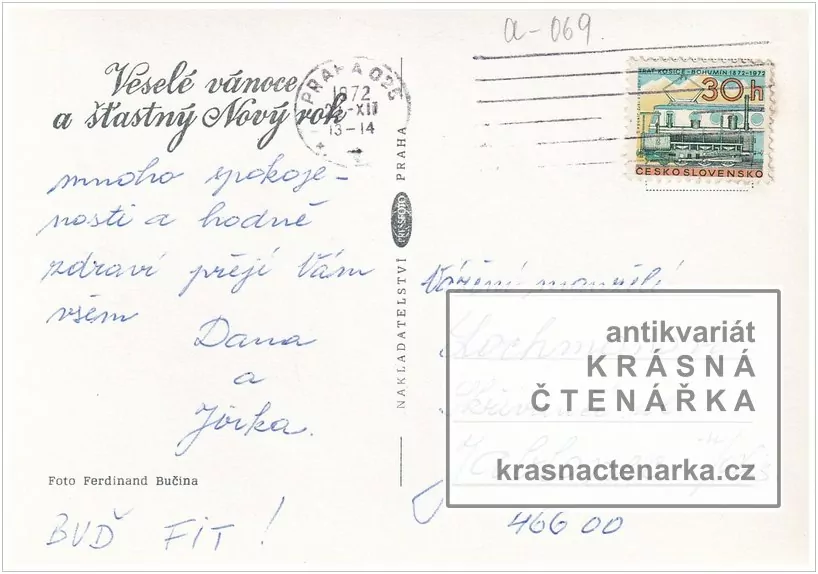 a-069
Veselé vánoce
a šťastný Nový rok
PRAHA 025
1972
-XII
13-14
TRAŤ KOŠICE-BOHUMÍN 1872-1972
30h
ČESKOSLOVENSKO
mnoho spokoje-
nosti a hodně
zdraví přejí Vám
všem
Dana
a
Jirka.
Foto Ferdinand Bučina
BUĎ FIT!
NAKLADATELSTVÍ PRESSFOTO PRAHA
Vážení manželé
antikvariát
KRÁSNÁ
ČTENÁŘKA
krasnactenarka.cz
466 00